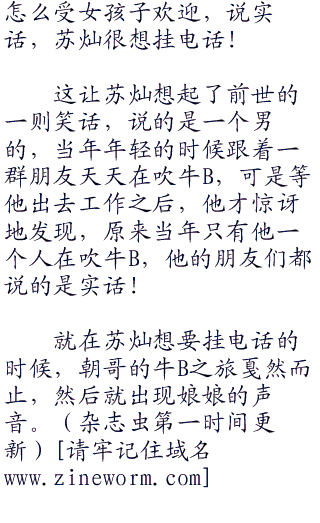 怎么受女孩子欢迎，说实
话，苏灿很想挂电话！
这让苏灿想起了前世的
一则笑话，说的是一个男
的，当年年轻的时候跟着一
群朋友天天在吹牛B，可是等
他出去工作之后，他才惊讶
地发现，原来当年只有他一
个人在吹牛B，他的朋友们都
说的是实话！
就在苏灿想要挂电话的
时候，朝哥的牛B之旅戛然而
止，然后就出现娘娘的声
音。（杂志虫第一时间更
新）[请牢记住域名
www.zineworm.com]